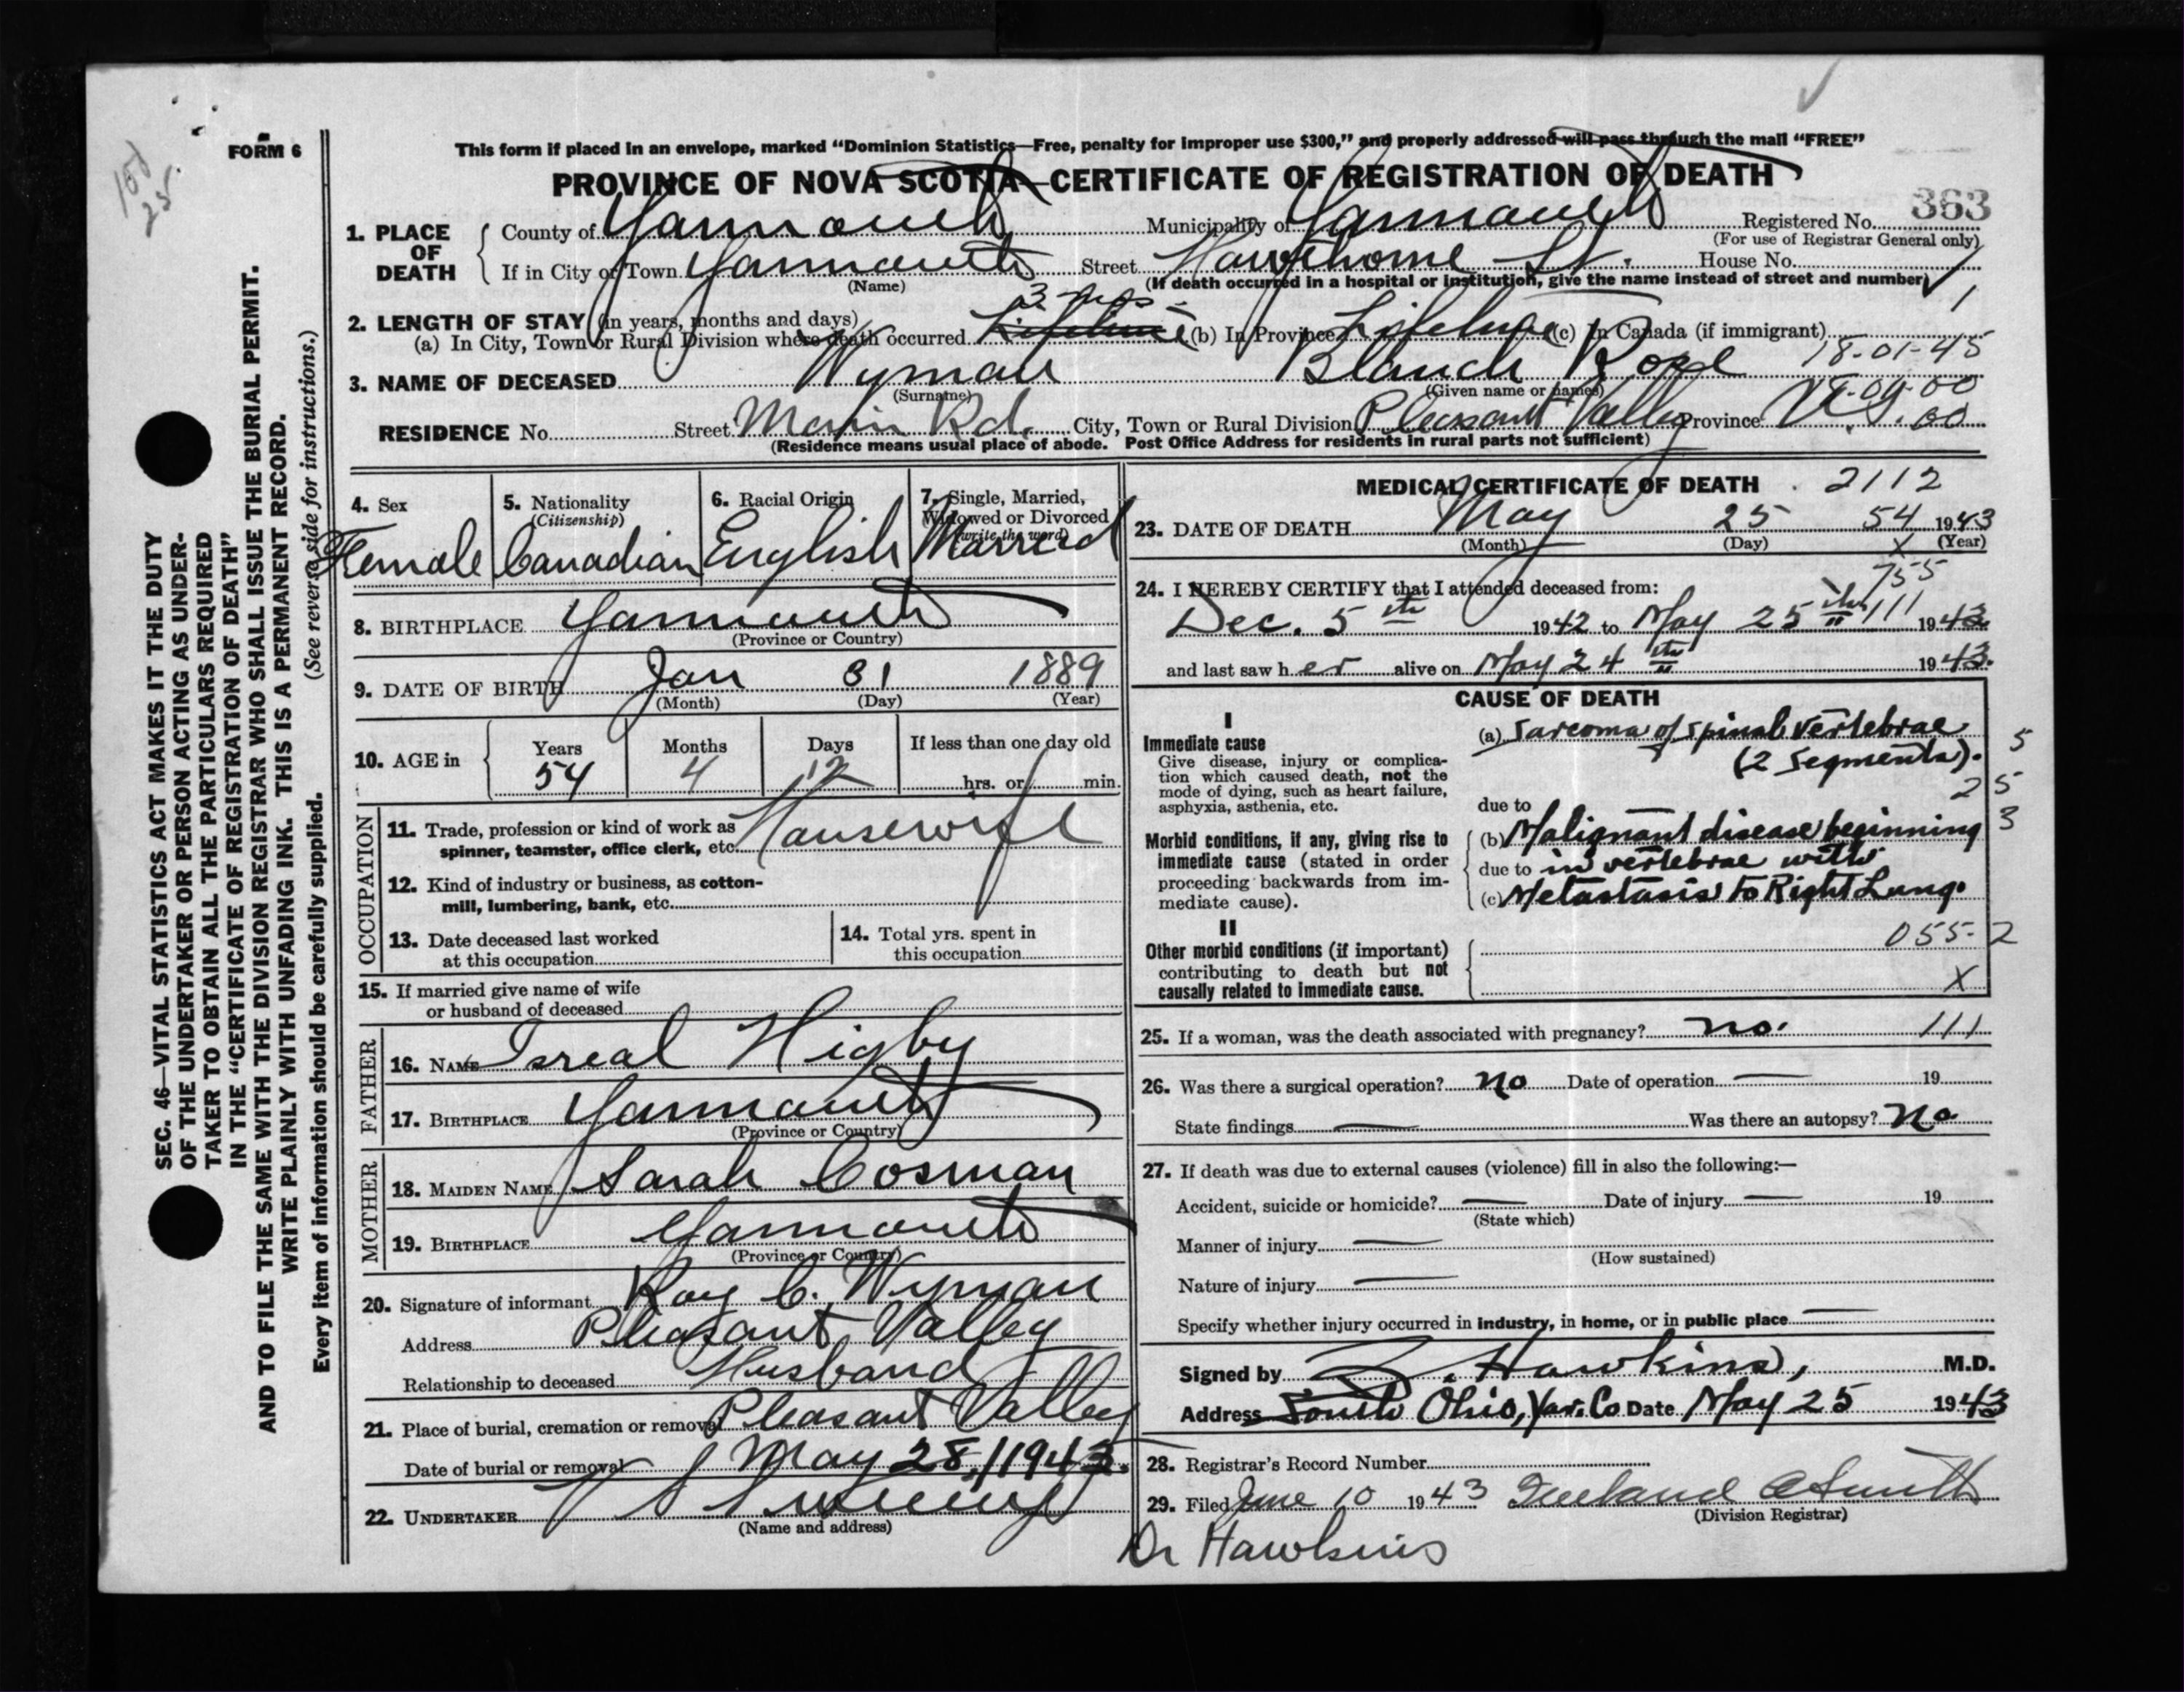 FORM 6
This form if placed in an envelope, marked "Dominion Statistics—Free, penalty for improper use $300," and properly addressed will pass through the mail "FREE"
PROVINCE OF NOVA SCOTIA—CERTIFICATE OF REGISTRATION OF DEATH
363
1. PLACE OF DEATH
County of Yarmouth Municipality of Yarmouth Registered No.
(For use of Registrar General only)
If in City or Town Yarmouth Street Hawthorne St. House No.
(Name) (If death occurred in a hospital or institution, give the name instead of street and number)
2. LENGTH OF STAY (in years, months and days)
(a) In City, Town or Rural Division where death occurred Lifetime (b) In Province Lifetime (c) In Canada (if immigrant)
18-01-45
3. NAME OF DECEASED Wyman Blanch
(Surname) (Given name or names)
RESIDENCE No. Street Main Rd. City, Town or Rural Division Pleasant Valley Province N.S.
(Residence means usual place of abode. Post Office Address for residents in rural parts not sufficient)
4. Sex
Female
5. Nationality
(Citizenship)
Canadian
6. Racial Origin
English
7. Single, Married, Widowed or Divorced
(write the word)
Married
8. BIRTHPLACE Yarmouth
(Province or Country)
9. DATE OF BIRTH Jan 31 1889
(Month) (Day) (Year)
10. AGE in
Years Months Days If less than one day old
54 4 12 hrs. or min.
OCCUPATION
11. Trade, profession or kind of work as
spinner, teamster, office clerk, etc. Housewife
12. Kind of industry or business, as cotton-
mill, lumbering, bank, etc.
13. Date deceased last worked
at this occupation
14. Total yrs. spent in
this occupation
15. If married give name of wife
or husband of deceased
FATHER
16. NAME Isreal Higby
17. BIRTHPLACE Yarmouth
(Province or Country)
MOTHER
18. MAIDEN NAME Sarah Cosman
19. BIRTHPLACE Yarmouth
(Province or Country)
20. Signature of informant Roy C. Wyman
Address Pleasant Valley
Relationship to deceased Husband
21. Place of burial, cremation or removal Pleasant Valley
Date of burial or removal May 28, 1943.
22. UNDERTAKER V S Sweeny
(Name and address)
MEDICAL CERTIFICATE OF DEATH 2112
23. DATE OF DEATH May 25 54 1943
(Month) (Day) X (Year)
755
24. I HEREBY CERTIFY that I attended deceased from:
Dec. 5th 1942 to May 25th 111 1943
and last saw her alive on May 24th 1943.
CAUSE OF DEATH
I
Immediate cause
Give disease, injury or complica-
tion which caused death, not the
mode of dying, such as heart failure,
asphyxia, asthenia, etc.
(a) Sarcoma of spinal vertebrae
(2 segments).
5
25
due to
Morbid conditions, if any, giving rise to
immediate cause (stated in order
proceeding backwards from im-
mediate cause).
(b) Malignant disease beginning
3
due to in vertebrae with
(c) Metastasis to Right Lung.
II
Other morbid conditions (if important)
contributing to death but not
causally related to immediate cause.
055-2
X
25. If a woman, was the death associated with pregnancy? no. 111
26. Was there a surgical operation? no Date of operation — 19
State findings — Was there an autopsy? No
27. If death was due to external causes (violence) fill in also the following:—
Accident, suicide or homicide? — Date of injury — 19
(State which)
Manner of injury —
(How sustained)
Nature of injury —
Specify whether injury occurred in industry, in home, or in public place —
Signed by Hawkins, M.D.
Address South Ohio, Yar. Co Date May 25 1943
28. Registrar's Record Number
29. Filed June 10 1943 Smith
(Division Registrar)
Dr Hawkins
SEC. 46—VITAL STATISTICS ACT MAKES IT THE DUTY
OF THE UNDERTAKER OR PERSON ACTING AS UNDER-
TAKER TO OBTAIN ALL THE PARTICULARS REQUIRED
IN THE "CERTIFICATE OF REGISTRATION OF DEATH"
AND TO FILE THE SAME WITH THE DIVISION REGISTRAR WHO SHALL ISSUE THE BURIAL PERMIT.
WRITE PLAINLY WITH UNFADING INK. THIS IS A PERMANENT RECORD.
(See reverse side for instructions.)
Every item of information should be carefully supplied.